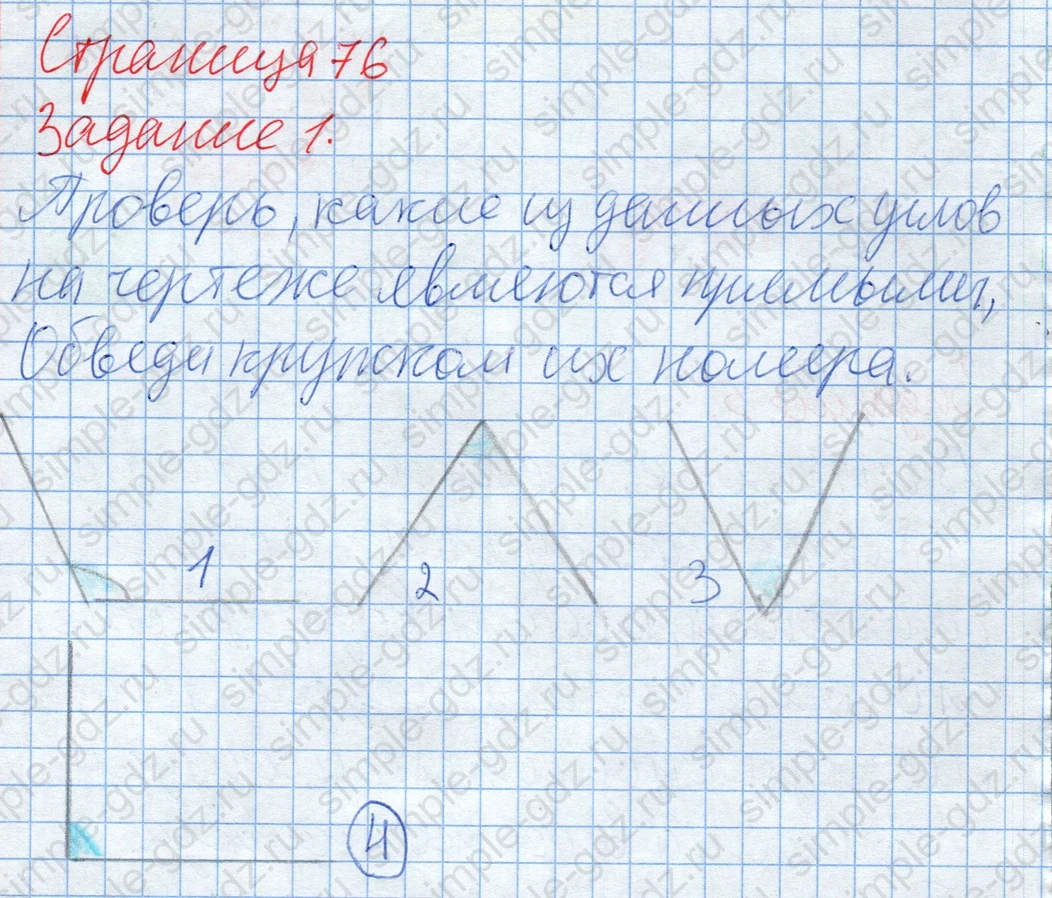 Страница 76
Задание 1.
Проверь, какие из данных углов
на чертеже являются прямыми,
Обведи кружком их номера.
1
2
3
4
simple-gdz.ru